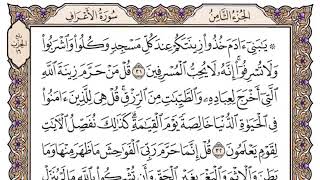 الجزء الثامن سورة الأعراف
۞ يَٰبَنِىٓ ءَادَمَ خُذُوا۟ زِينَتَكُمْ عِندَ كُلِّ مَسْجِدٍ وَكُلُوا۟ وَٱشْرَبُوا۟
وَلَا تُسْرِفُوٓا۟ إِنَّهُۥ لَا يُحِبُّ ٱلْمُسْرِفِينَ ٣١ قُلْ مَنْ حَرَّمَ زِينَةَ ٱللَّهِ
ٱلَّتِىٓ أَخْرَجَ لِعِبَادِهِۦ وَٱلطَّيِّبَٰتِ مِنَ ٱلرِّزْقِ قُلْ هِىَ لِلَّذِينَ ءَامَنُوا۟
فِى ٱلْحَيَوٰةِ ٱلدُّنْيَا خَالِصَةً يَوْمَ ٱلْقِيَٰمَةِ كَذَٰلِكَ نُفَصِّلُ ٱلْءَايَٰتِ
لِقَوْمٍ يَعْلَمُونَ ٣٢ قُلْ إِنَّمَا حَرَّمَ رَبِّىَ ٱلْفَوَٰحِشَ مَا ظَهَرَ مِنْهَا وَمَا
بَطَنَ وَٱلْإِثْمَ وَٱلْبَغْىَ بِغَيْرِ ٱلْحَقِّ وَأَن تُشْرِكُوا۟ بِٱللَّهِ مَا لَمْ يُنَزِّلْ